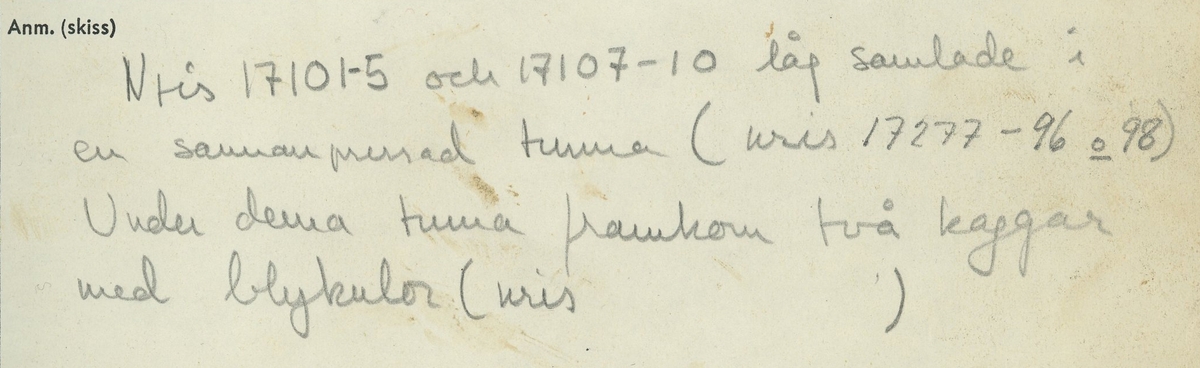 Anm. (skiss)
Nris 17101-5 och 17107-10 låg samlade i
en sammanpressad tunna (nris 17277-96 o 98)
Under denna tunna framkom två kaggar
med blykulor (nris )